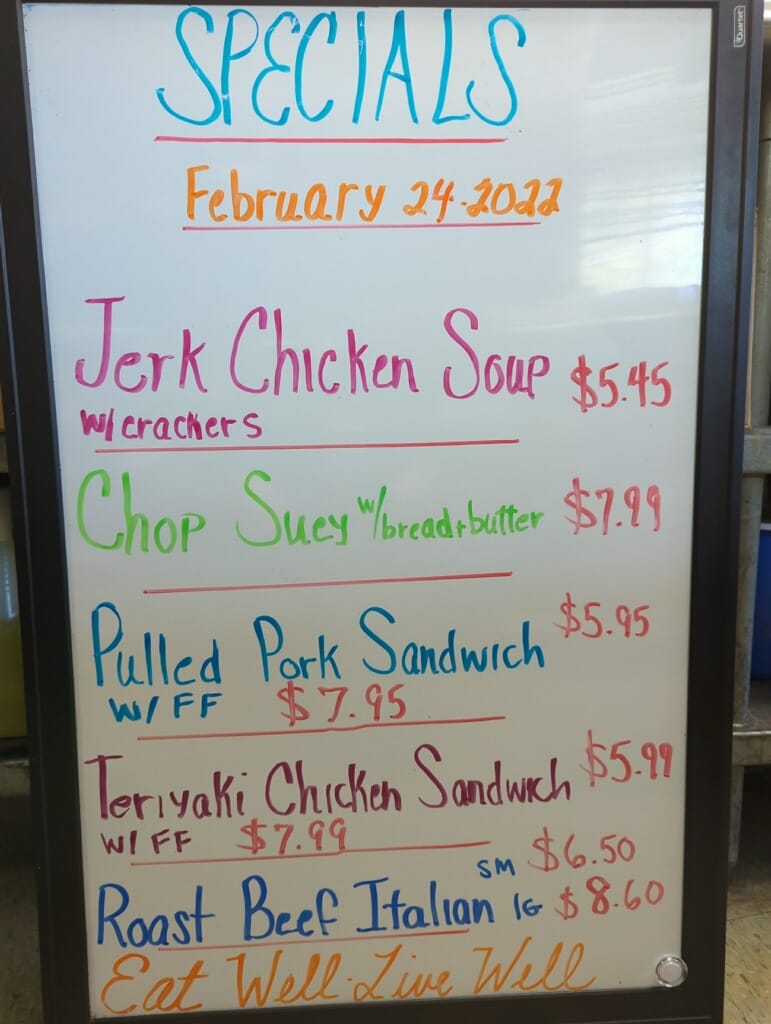 SPECIALS
February 24.2022
Jerk Chicken Soup $5.45
w/crackers
Chop Suey w/bread+butter $7.99
Pulled Pork Sandwich $5.95
w/ FF $7.95
Teriyaki Chicken Sandwich $5.99
w/ FF $7.99
SM $6.50
Roast Beef Italian lG $8.60
Eat Well. Live Well
Quartet